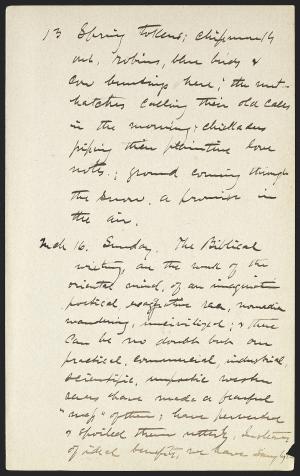 13 Spring tokens; chipmunks
out, robins, blue birds &
cow buntings here; the nut-
hatches calling their old calls
in the morning; chickadees
piping their plaintive love
notes; ground coming through
the snow. a promise in
the air.
Mch 16. Sunday. The Biblical
writings are the work of the
oriental mind, of an imaginative
poetical, exaggerative race, nomadic
wandering, uncivilized; & there
can be no doubt but our
practical, commercial, industrial,
scientific, unpoetic western
races have made a fearful
"mess" of them; have perverted
& spoiled them utterly. Instead
of ideal benefits, we have simply